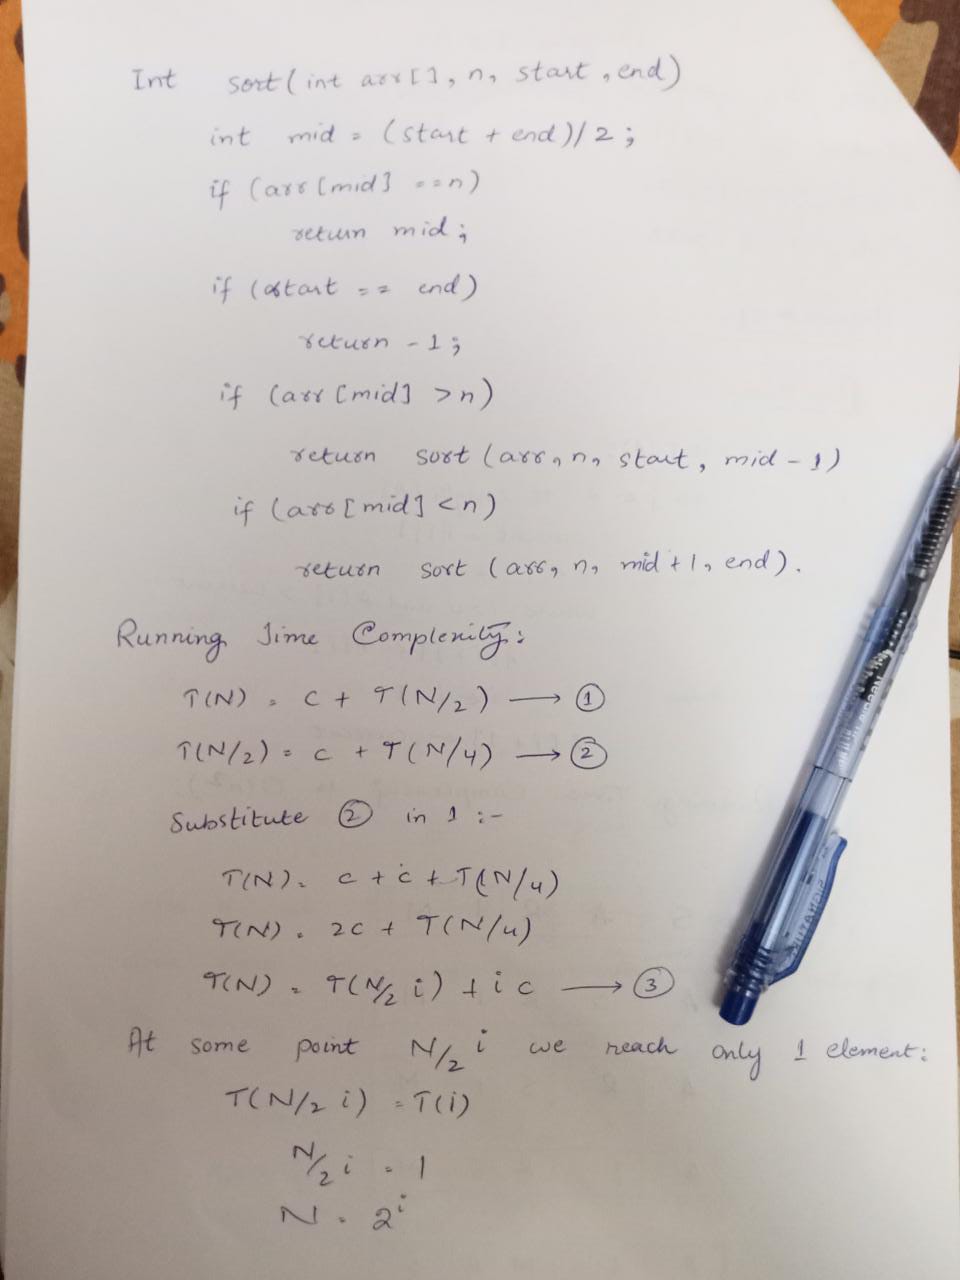 Int sort(int arr[], n, start, end)
int mid = (start + end)/2;
if (arr[mid] ==n)
return mid;
if (start == end)
return -1;
if (arr[mid] >n)
return sort (arr, n, start, mid - 1)
if (arr[mid] <n)
return sort (arr, n, mid+1, end).
Running Time Complexity:
T(N) = c + T(N/2) → ①
T(N/2) = c + T(N/4) → ②
Substitute ② in 1 :-
T(N) = c + c + T(N/4)
T(N) = 2c + T(N/4)
T(N) = T(N/2 i) + i c → ③
At some point N/2 i we reach only 1 element:
T(N/2 i) = T(i)
N/2 i = 1
N = 2^i